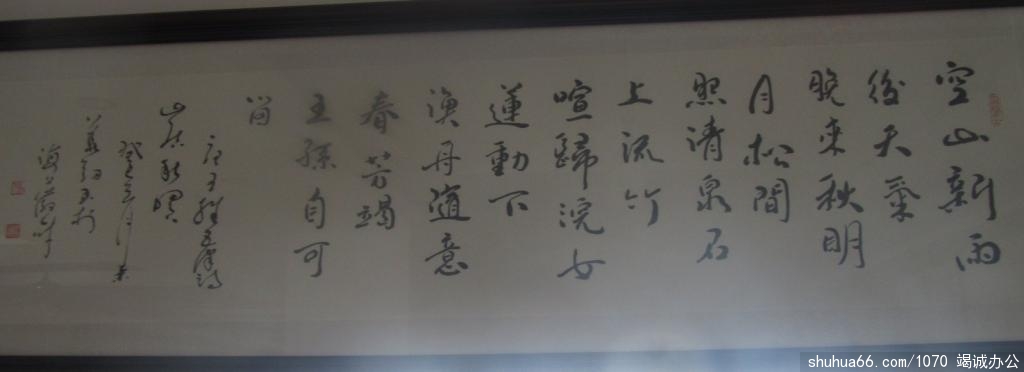 空山新雨
後天氣
晚来秋明
月松間
照清泉石
上流竹
喧歸浣女
蓮動下
漁舟随意
春芳竭
王孫自可
留
唐王維五律詩
山居秋暝
癸巳
shuhua66.com/1070 竭诚办公